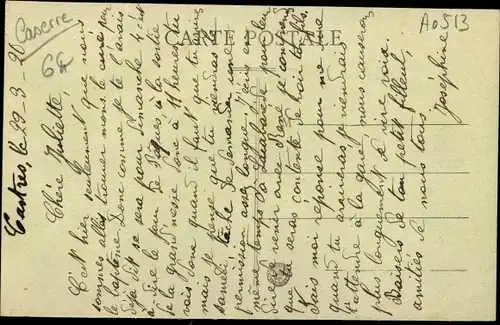 Caserne
6€
A0513
CARTE POSTALE
Castres, le 29-3-20
Chère Juliette,
C'est hier seulement que nous
sommes allés trouver mons. le curé pour
le baptême. Donc comme je te l'avais
déjà dit se sera pour Dimanche c'est
à dire le jour de Pâques à la sortie
de la grand'messe donc à 11 heures. Tu
sais donc quand il faut que tu viennes
mais je pense que tu viendras
samedi, tâche de demander une
permission assez longue. J'ai en
même temps à pour
venir avec René je pense
que tu seras contente de
Fais moi réponse pour me dire
quand tu arriveras je viendrais
t'attendre à la gare, nous causerons
plus longuement de vive voix.
Baisers de ton petit filleul,
amitiés de nous tous
Joséphine